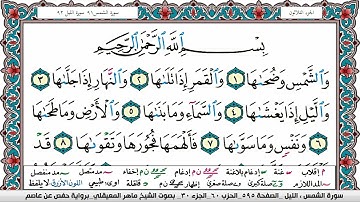 الجزء الثلاثون
سورة الشمس ٩١ سورة الليل ٩٢
بِسْمِ اللَّهِ الرَّحْمَٰنِ الرَّحِيمِ
وَالشَّمْسِ وَضُحَاهَا ١ وَالْقَمَرِ إِذَا تَلَاهَا ٢ وَالنَّهَارِ إِذَا جَلَّاهَا ٣
وَاللَّيْلِ إِذَا يَغْشَاهَا ٤ وَالسَّمَاءِ وَمَا بَنَاهَا ٥ وَالْأَرْضِ وَمَا طَحَاهَا
٦ وَنَفْسٍ وَمَا سَوَّاهَا ٧ فَأَلْهَمَهَا فُجُورَهَا وَتَقْوَاهَا ٨ قَدْ
سورة الشمس، الليل . الصفحة ٥٩٥ . الحزب ٦٠ . الجزء ٣٠ . بصوت الشيخ ماهر المعيقلي . برواية حفص عن عاصم